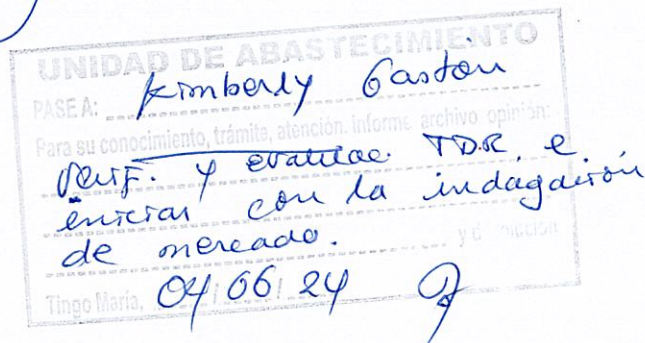 UNIDAD DE ABASTECIMIENTO
PASE A: Kimberly Gastón
Para su conocimiento, trámite, atención. informe archivo opinión:
Verif. y evaluac. TDR e
iniciar con la indagación
de mercado.
Tingo María, 04 06 24